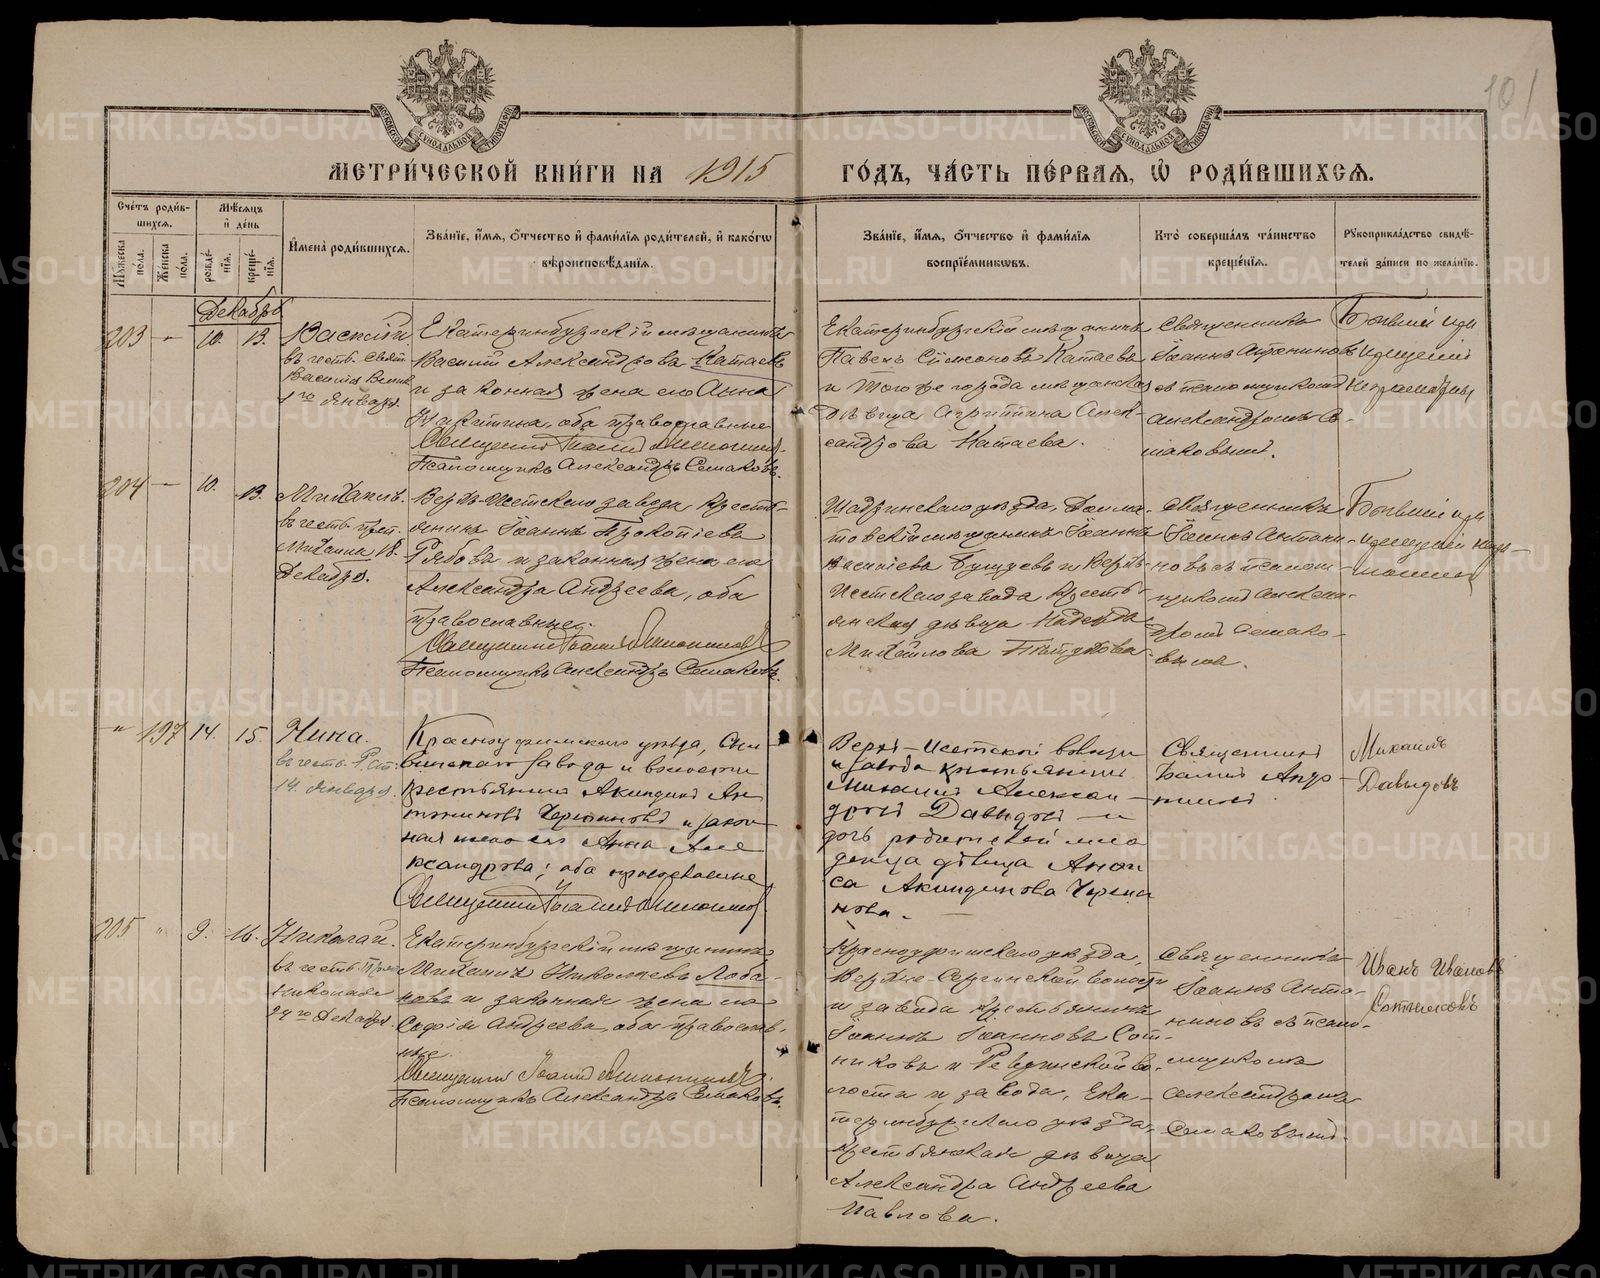 101
МОСКОВСКОЙ СѴНОДАЛЬНОЙ ТИПОГРАФІИ
МОСКОВСКОЙ СѴНОДАЛЬНОЙ ТИПОГРАФІИ
МЕТРИ́ЧЕСКОЙ КНИ́ГИ НА 1915 ГО́ДЪ, ЧА́СТЬ ПЕ́РВАЯ, Ѽ РОДИ́ВШИХСЯ.
Сче́тъ роди́в-
шихся.
Му́жеска по́ла.
Же́нска по́ла.
Мѣ́сяцъ
и҆ де́нь
рожде́-
нїя.
креще́-
нїя.
И҆мена̀ роди́вшихся.
Зва́нїе, и҆́мя, ѻ҆́тчество и҆ фами́лїя роди́телей, и҆ како́гѡ
вѣроисповѣ́данїя.
Зва́нїе, и҆́мя, ѻ҆́тчество и҆ фами́лїя
воспрїе́мникѡвъ.
Кто̀ соверша́лъ та́инство
креще́нїя.
Рꙋкоприкла́дство свидѣ́-
телей за́писи по жела́нїю.
Декабрь
203 - 10. 13.
Василій
въ честь Свят.
Василія Велик.
1го Января.
Екатеринбургскій мѣщанинъ
Василій Александровъ Катаевъ
и законная жена его Анна
Никитина, оба православные
Священникъ Іоаннъ Антониновъ
Псаломщикъ Александръ Семаковъ.
Екатеринбургскій мѣщанинъ
Павелъ Симоновъ Катаевъ
и того же города мѣщанская
дѣвица Агриппина Алек-
сандрова Катаева.
Священникъ
Іоаннъ Антониновъ
съ псаломщикомъ
Александромъ Се-
маковымъ.
204 - 10. 13.
Михаилъ.
въ честь
Михаила 18.
Декабря.
Верхъ-Исетскаго завода кресть-
янинъ Іоаннъ Прокопіевъ
Рябовъ и законная жена его
Александра Андреева, оба
православные.
Священникъ Іоаннъ Антониновъ
Псаломщикъ Александръ Семаковъ.
Шадринскаго уѣзда, Долма-
товскій мѣщанинъ Іоаннъ
Василіевъ и Верхъ-
Исетскаго завода кресть-
янская дѣвица Надежда
Михайлова
Священникъ
Іоаннъ Антони-
новъ съ псалом-
щикомъ Алексан-
дромъ Семако-
вымъ.
" 197 14. 15.
Нина.
въ честь Рав.
14. Января.
Красноуфимскаго уѣзда, Сы-
винскаго завода и волости
крестьянинъ Акиндинъ Ан-
тониновъ Черепановъ и закон-
ная жена его Анна Але-
ксандрова; оба православные
Священникъ Іоаннъ Антониновъ
Верхъ-Исетской волости
и завода крестьянинъ
Михаилъ Алексан-
дровъ Давыдовъ и
дочь родителей мла-
денца дѣвица Анфи-
са Акиндинова Черепа-
нова.
Священникъ
Іоаннъ Анто-
ниновъ
Михаилъ
Давыдовъ
205 " 9. 16.
Николай.
въ честь
Николая
24го Декабря.
Екатеринбургскій мѣщанинъ
Михаилъ Николаевъ Лоба-
новъ и законная жена его
Софія Андреева, оба православ-
ные.
Священникъ Іоаннъ Антониновъ
Псаломщикъ Александръ Семаковъ.
Красноуфимскаго уѣзда,
Верхне-Сергинской волости
и завода крестьянинъ
Іоаннъ Іоанновъ Сот-
никовъ и Ревдинской во-
лости и завода, Ека-
теринбургскаго уѣзда,
крестьянская дѣвица
Александра Андреева
Павлова.
Священникъ
Іоаннъ Анто-
ниновъ съ псало-
мщикомъ
Александромъ
Семаковымъ.
Иванъ Ивановъ
Сотниковъ
METRIKI.GASO-URAL.RU